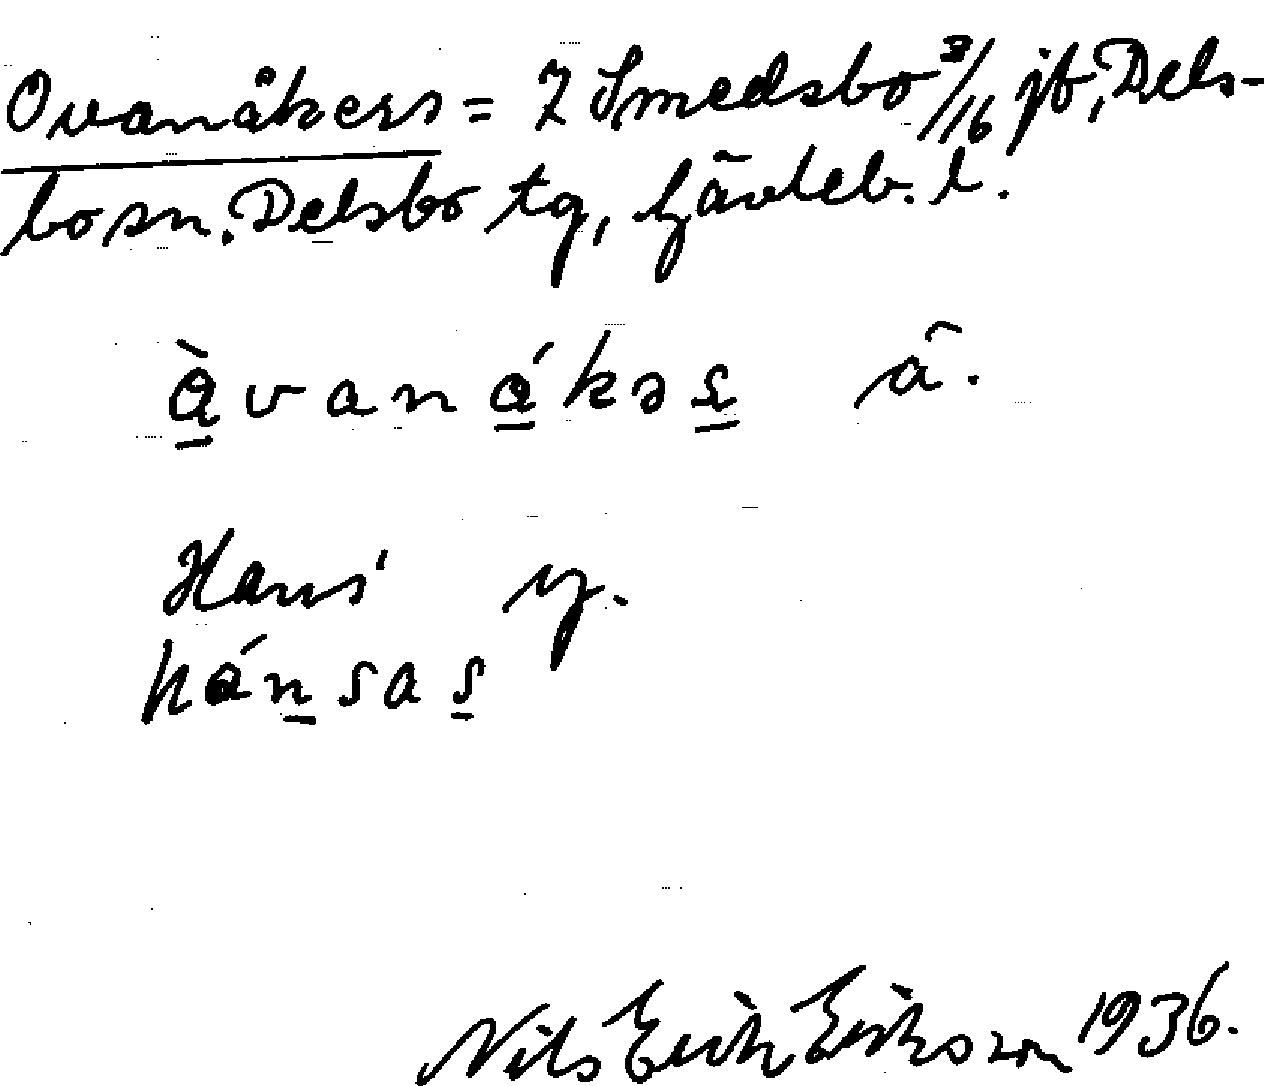 Ovanåkers = 7 Smedsbo 3/16 jb, Dels-
bo sn. Delsbo tg, Gävleb. l.
å̠̀vaná̠kəs̠ â.
Hans' y.
hán̠sas̠
Nils Erik Eriksson 1936.